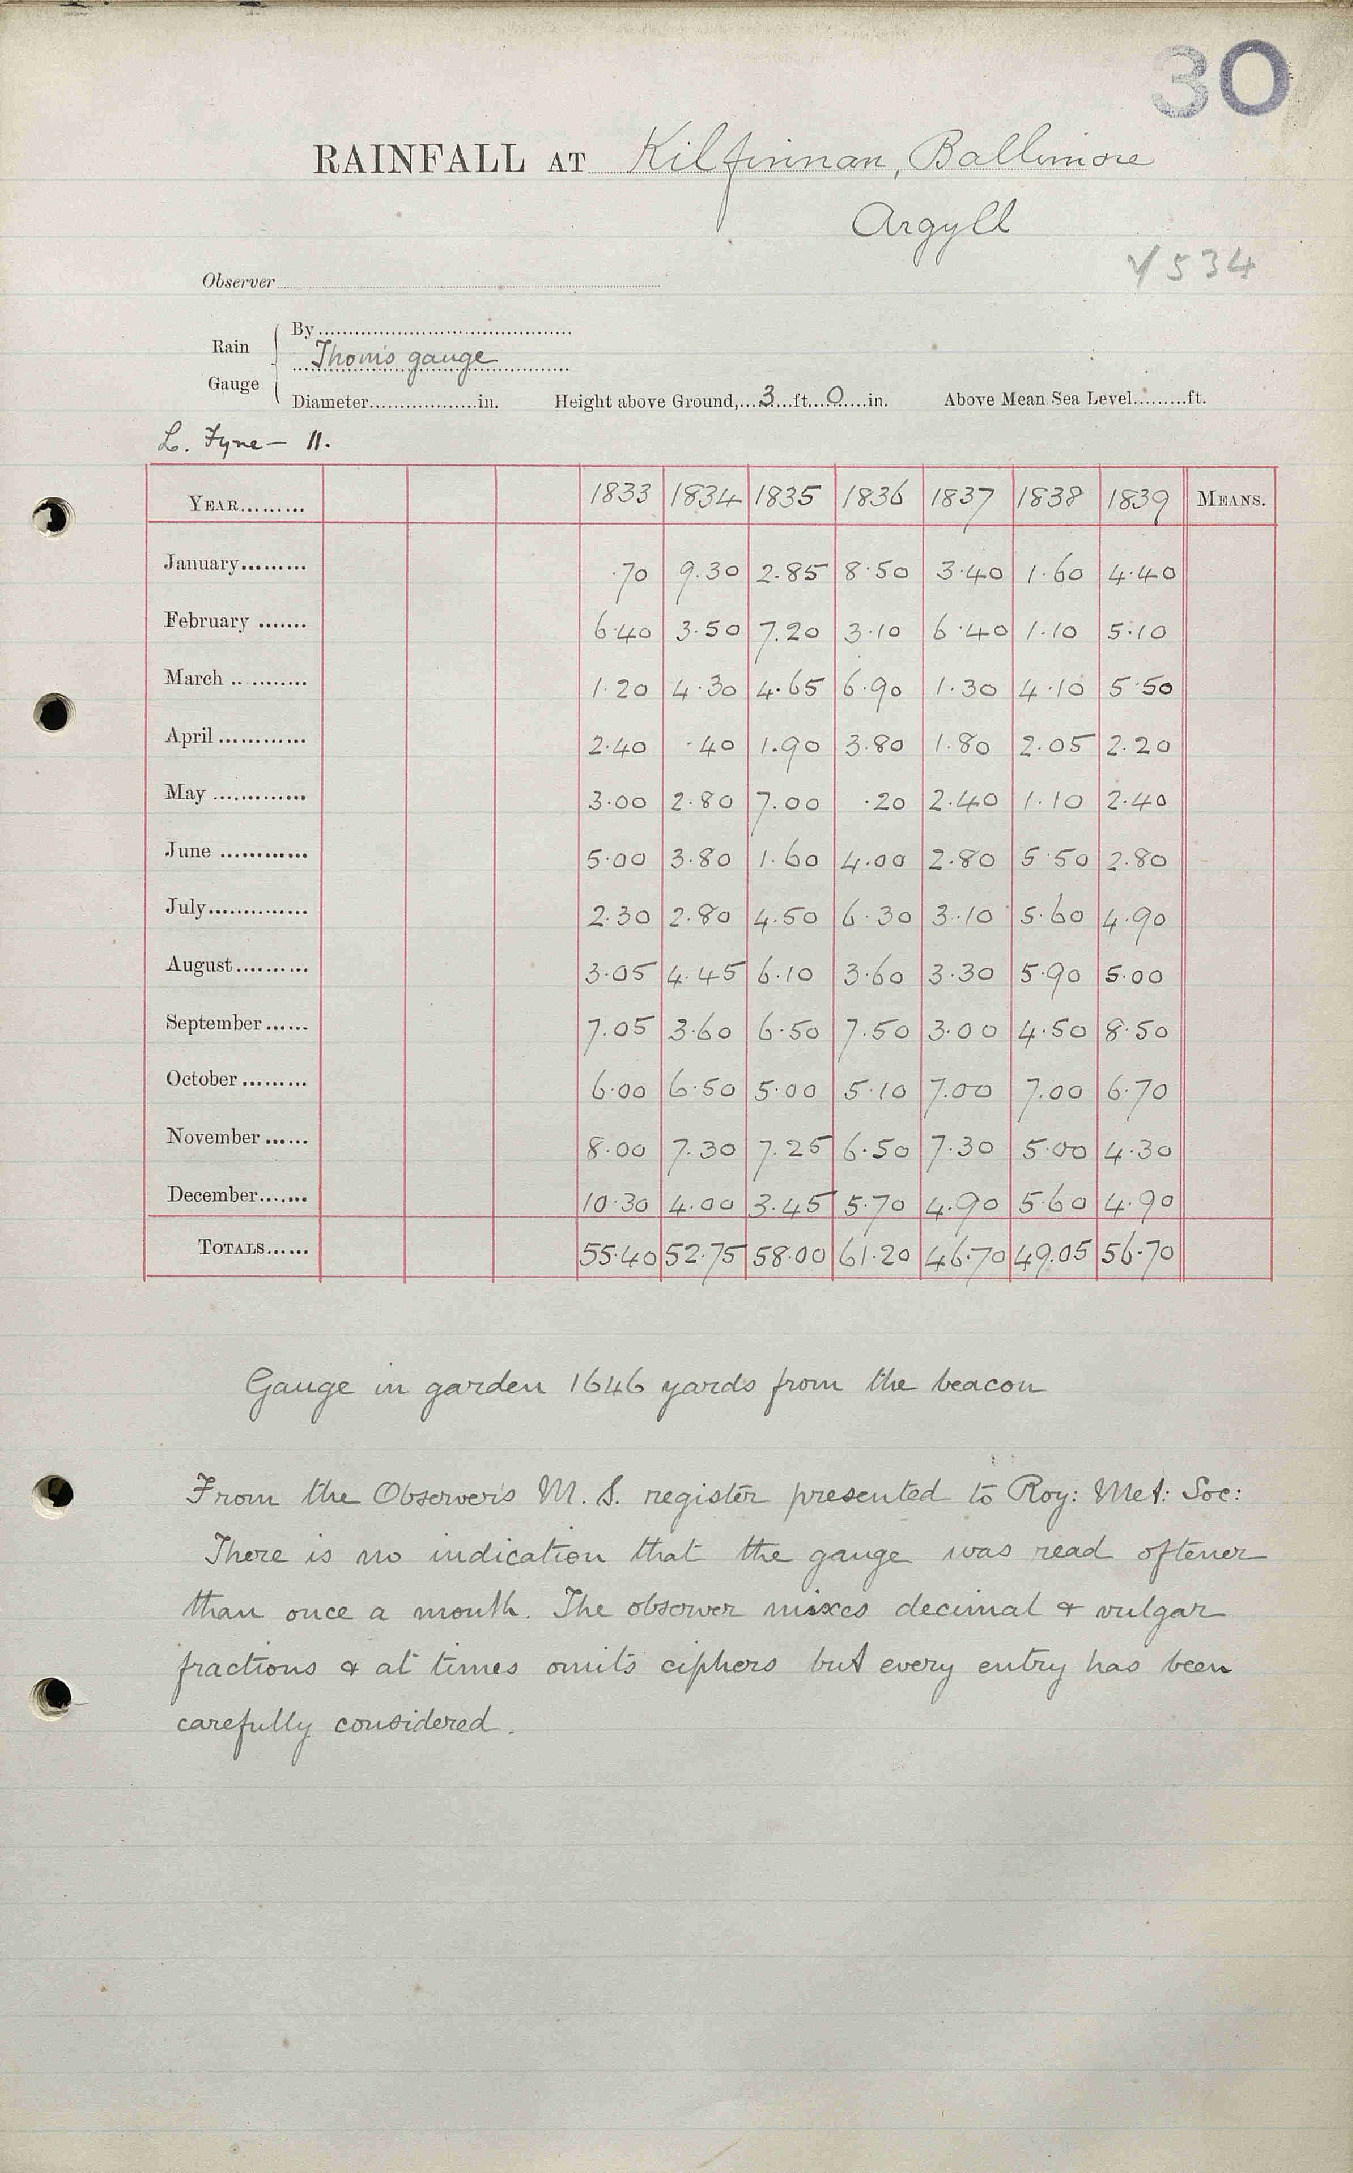 30
RAINFALL AT Kilfinnan, Ballimore
Argyll
√534
Observer
Rain Gauge
By
Thom's gauge
Diameter in. Height above Ground, 3 ft. 0 in. Above Mean Sea Level ft.
L. Fyne — 11.
YEAR 1833 1834 1835 1836 1837 1838 1839 MEANS.
January ·70 9·30 2·85 8·50 3·40 1·60 4·40
February 6·40 3·50 7·20 3·10 6·40 1·10 5·10
March 1·20 4·30 4·65 6·90 1·30 4·10 5·50
April 2·40 ·40 1·90 3·80 1·80 2·05 2·20
May 3·00 2·80 7·00 ·20 2·40 1·10 2·40
June 5·00 3·80 1·60 4·00 2·80 5·50 2·80
July 2·30 2·80 4·50 6·30 3·10 5·60 4·90
August 3·05 4·45 6·10 3·60 3·30 5·90 5·00
September 7·05 3·60 6·50 7·50 3·00 4·50 8·50
October 6·00 6·50 5·00 5·10 7·00 7·00 6·70
November 8·00 7·30 7·25 6·50 7·30 5·00 4·30
December 10·30 4·00 3·45 5·70 4·90 5·60 4·90
TOTALS 55·40 52·75 58·00 61·20 46·70 49·05 56·70
Gauge in garden 1646 yards from the beacon
From the Observer's M. S. register presented to Roy: Met: Soc:
There is no indication that the gauge was read oftener
than once a month. The observer mixes decimal & vulgar
fractions & at times omits ciphers but every entry has been
carefully considered.